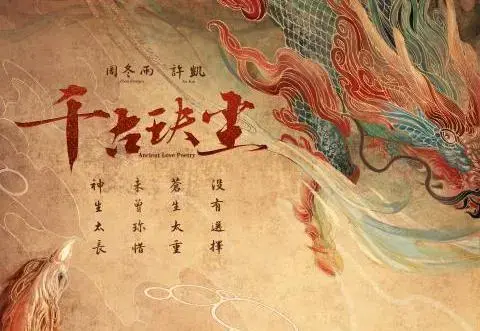 周冬雨 許凱
Xu Kai
千古玦尘
Ancient Love Poetry
神生太長
未曾珎惜
蒼生太重
沒有選擇